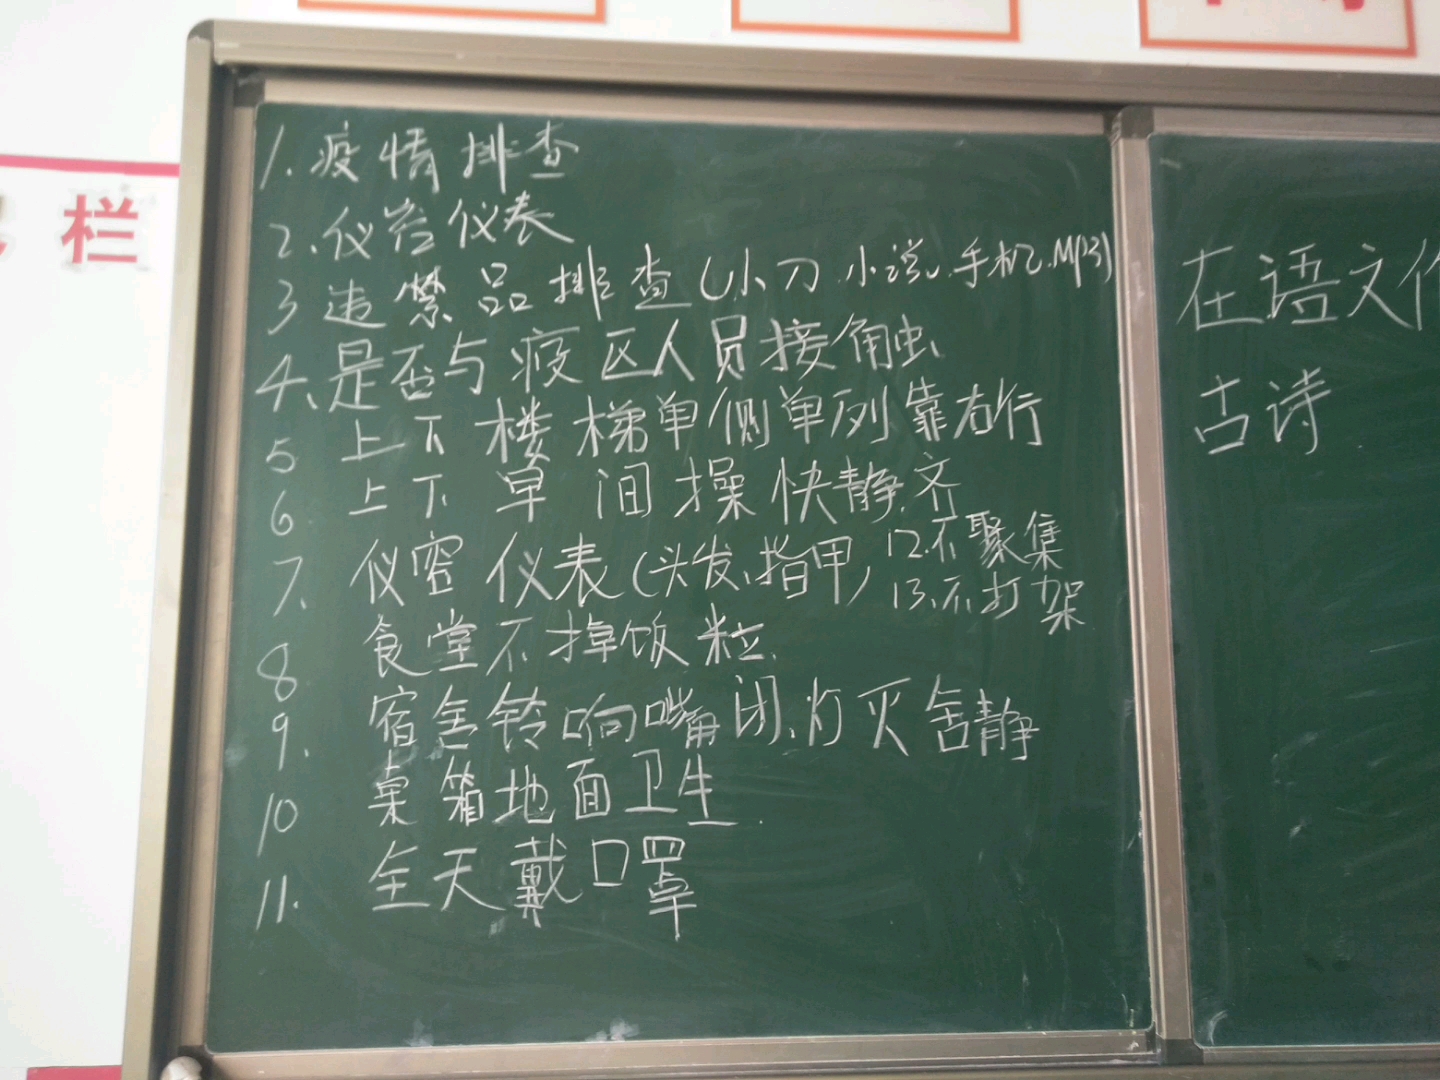 栏
1.疫情排查
2.仪容仪表
3 违禁品排查(小刀.小说、手机.MP3)
4、是否与疫区人员接触
5 上下楼梯单侧单列靠右行
6 上下早间操快静齐
7、仪容仪表(头发、指甲)
12.不聚集
13、不打架
8 食堂不掉饭粒.
9. 宿舍铃响嘴闭、灯灭舍静
10 桌箱地面卫生.
11. 全天戴口罩
在语文作
古诗